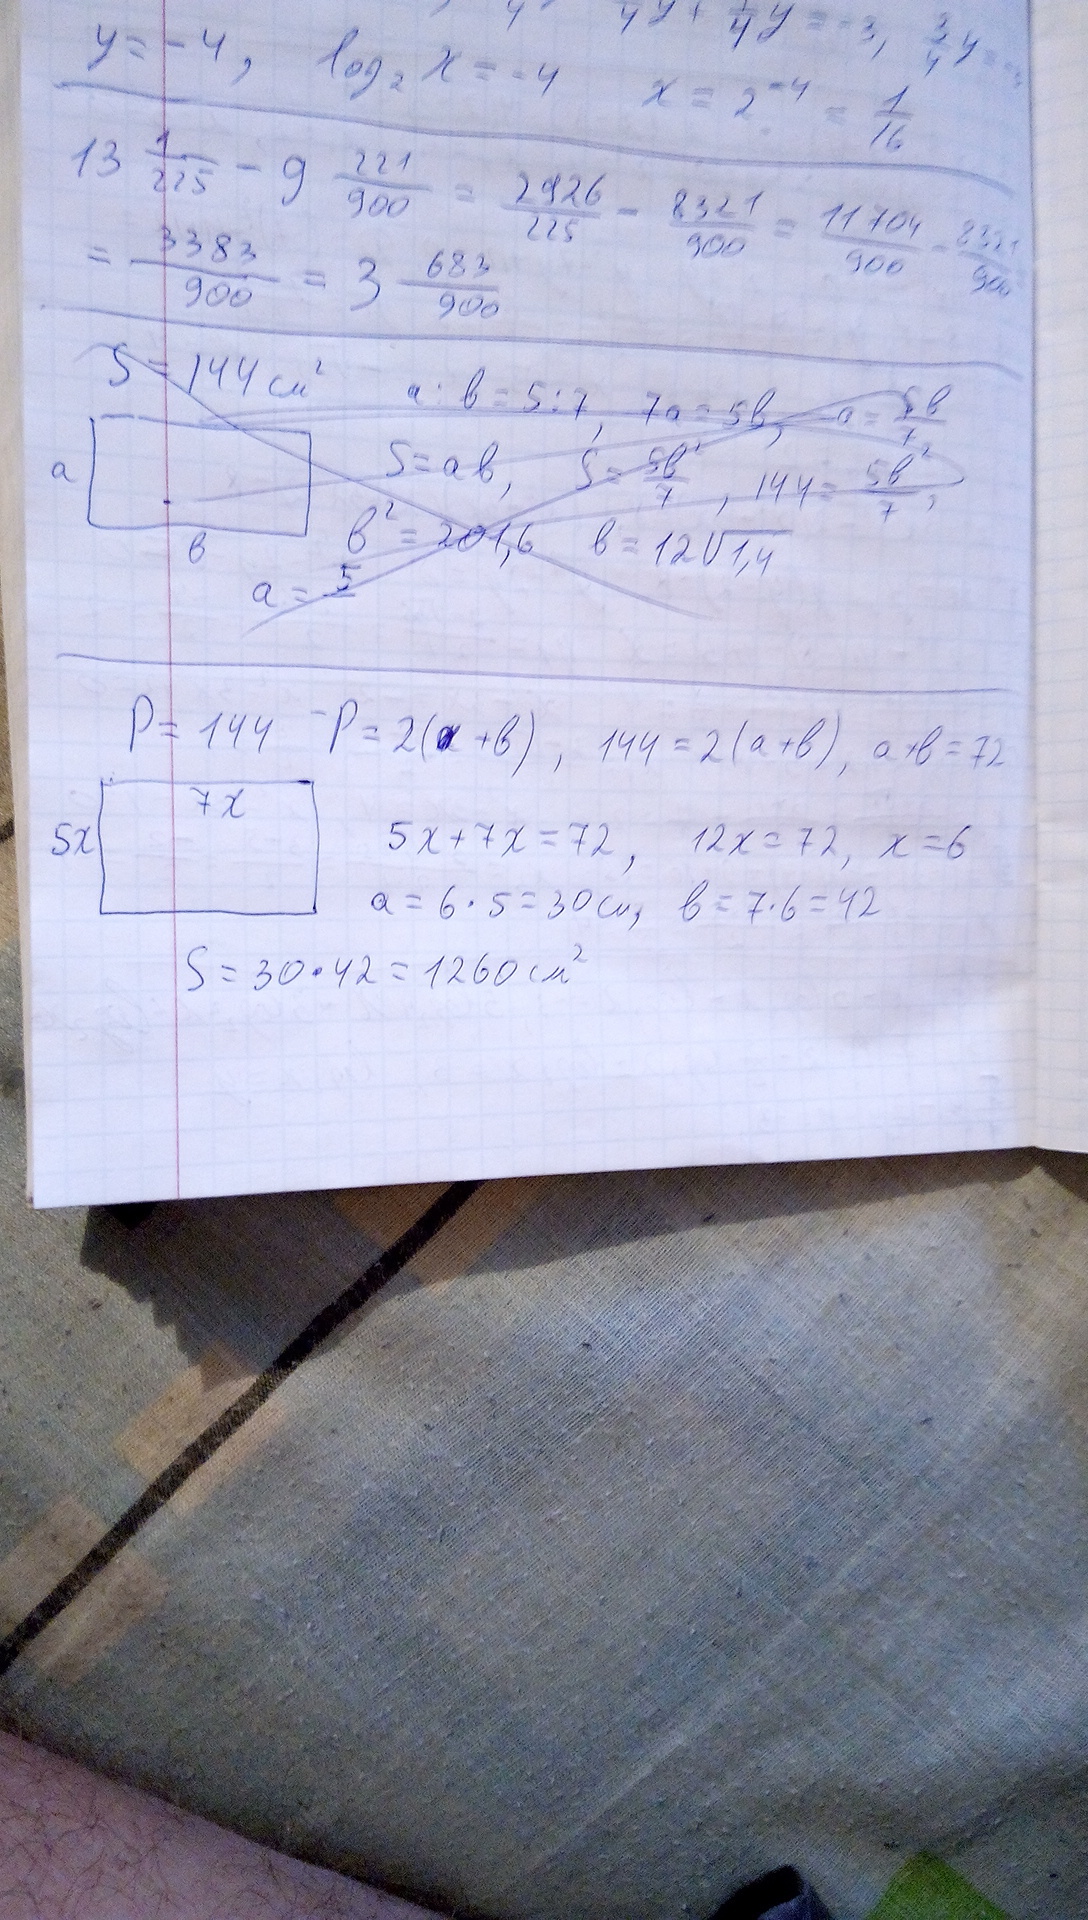 y = -4, log₂ x = -4 x = 2⁻⁴ = 1/16
13 1/225 - 9 221/900 = 2926/225 - 8321/900 = 11704/900 - 8321/900
= 3383/900 = 3 683/900
S = 144 см²
a : в = 5 : 7, 7a = 5в, a = 5в/7
a S = aв, S = 5в²/7, 144 = 5в²/7,
в в² = 201,6 в = 12√1,4
a = 5
P = 144 P = 2(a + в), 144 = 2(a + в), a + в = 72
7x
5x 5x + 7x = 72, 12x = 72, x = 6
a = 6 · 5 = 30 см, в = 7 · 6 = 42
S = 30 · 42 = 1260 см²